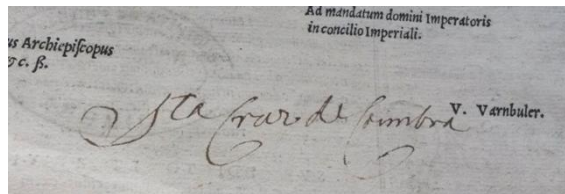 Ad mandatum domini Imperatoris
in concilio Imperiali.
us Archiepiſcopus
⁊c. ß.
Sta Cruz de Coimbra
V. Varnbuler.